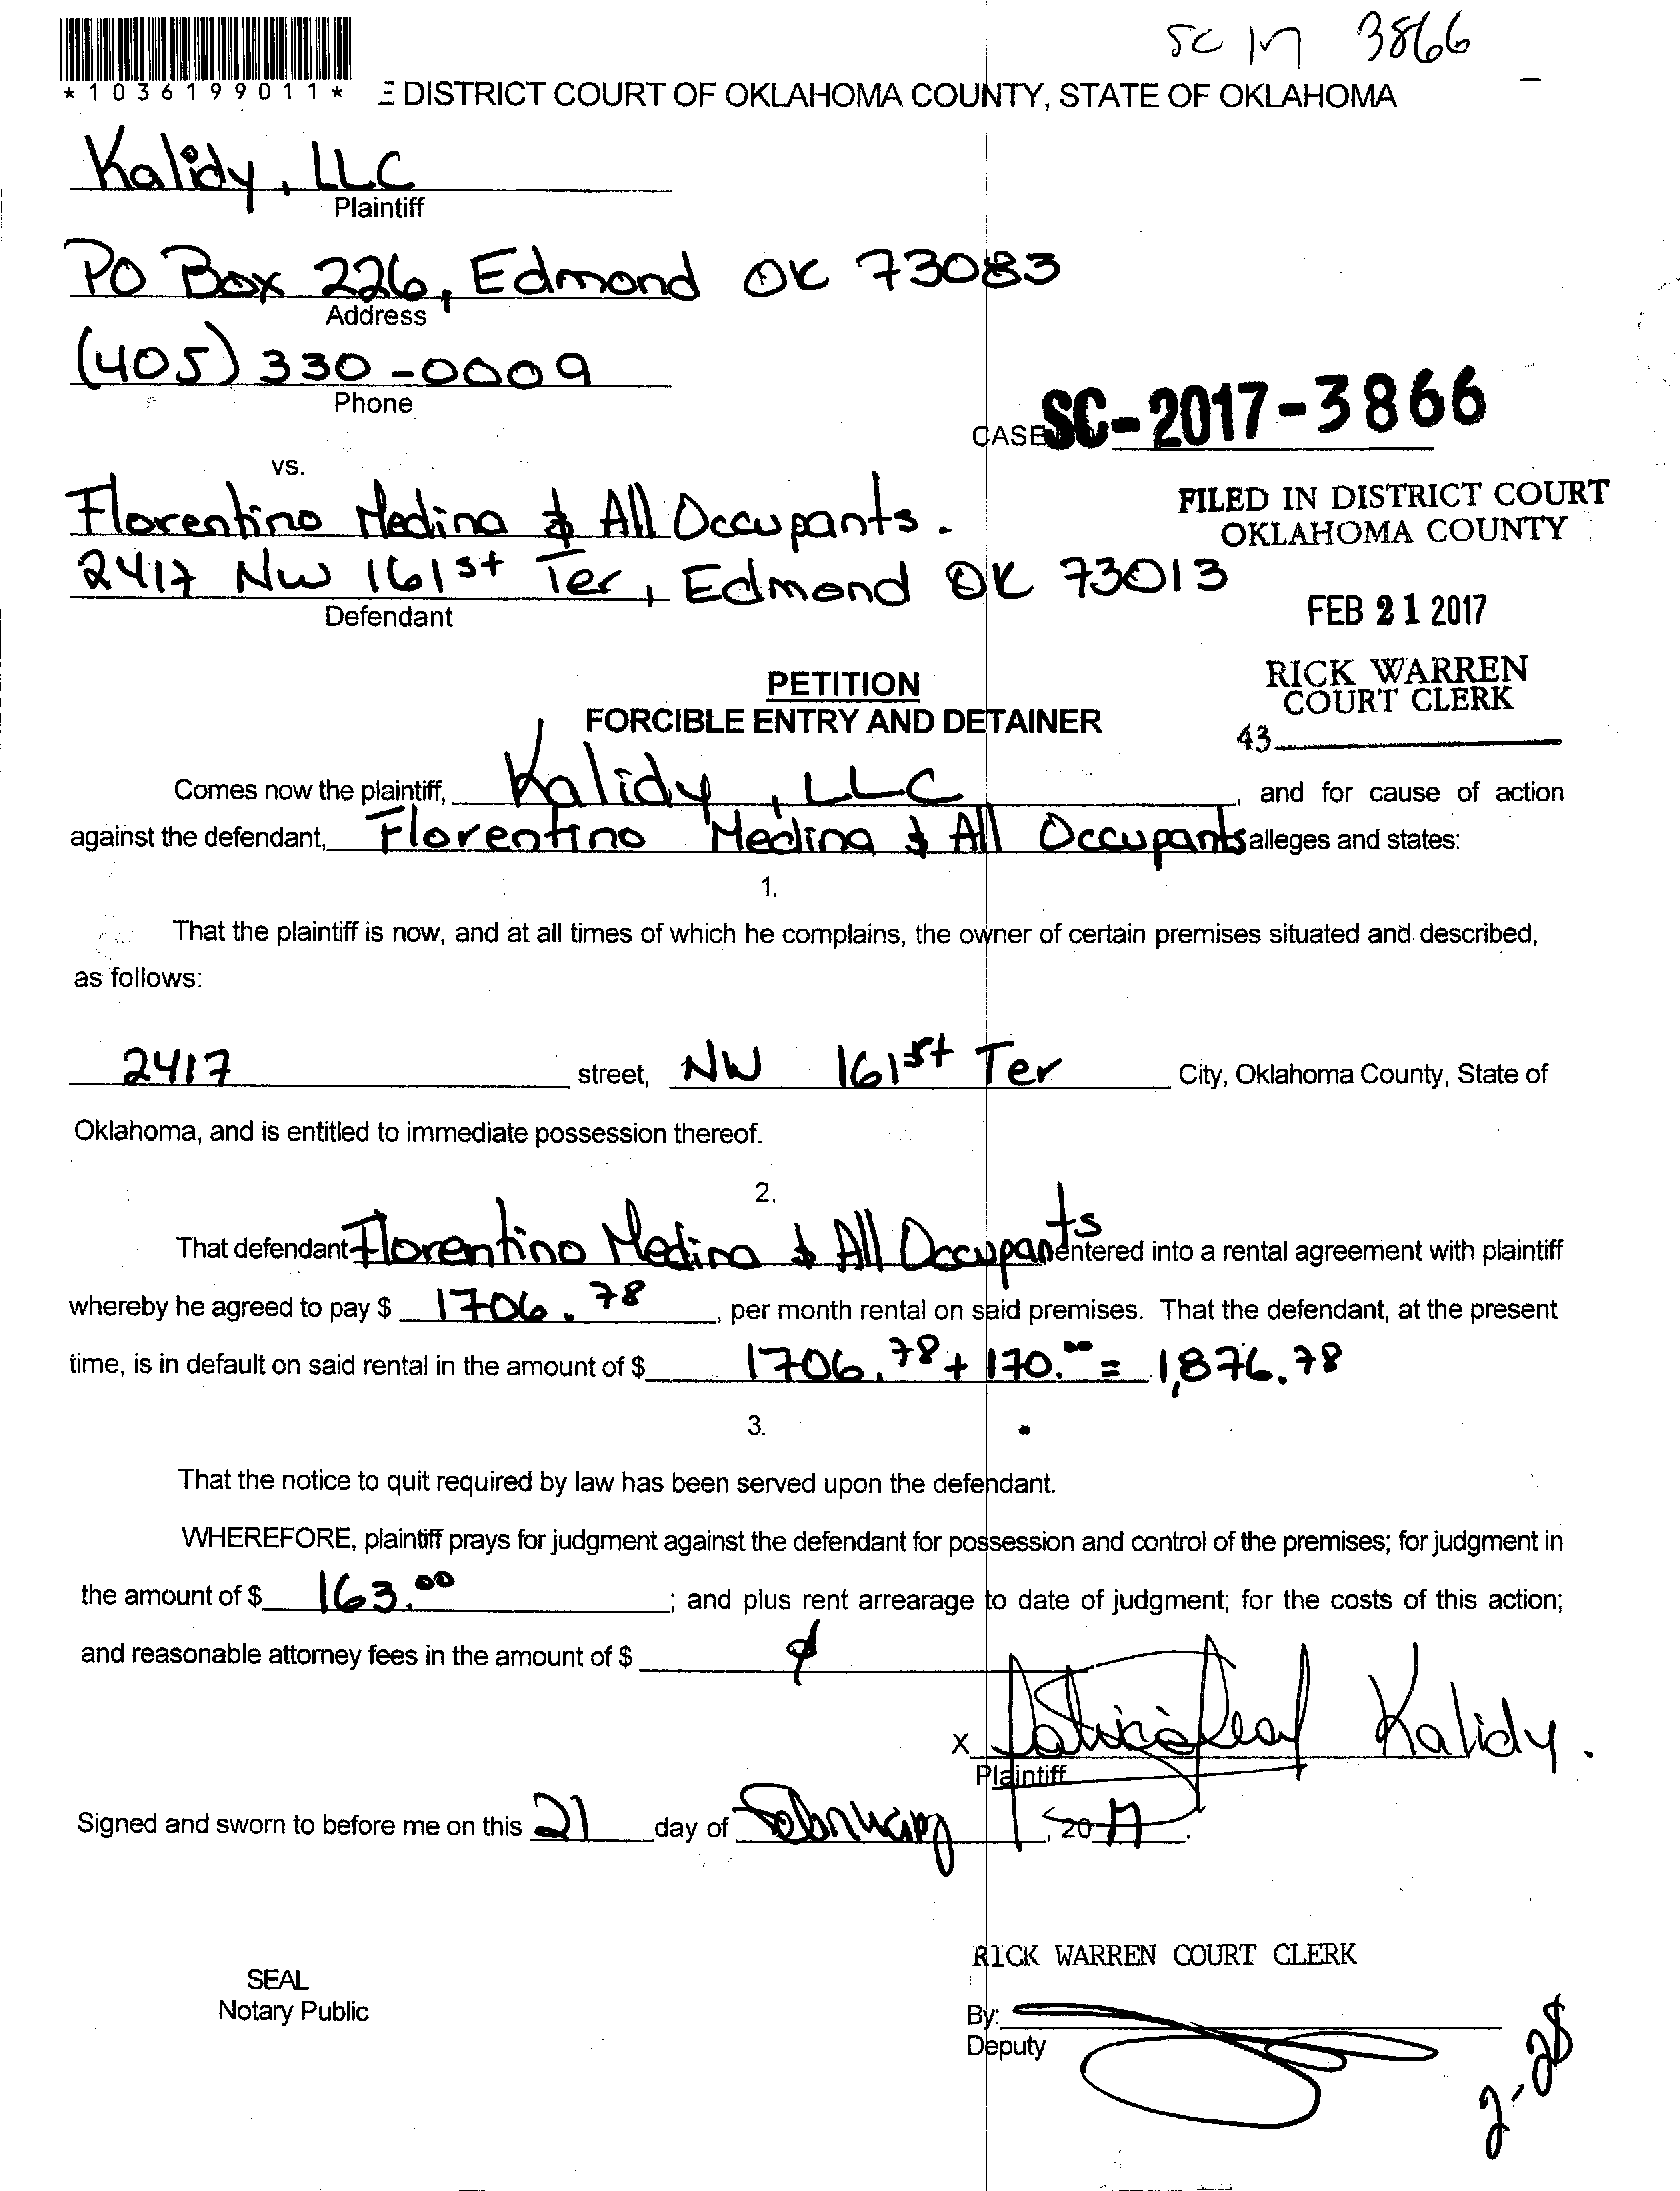 SC 17 3866
*1036199011* E DISTRICT COURT OF OKLAHOMA COUNTY, STATE OF OKLAHOMA
Kalidy, LLC
Plaintiff
PO Box 226, Edmond OK 73083
Address
(405) 330-0009
Phone
CASE SC-2017-3866
vs.
Florentino Medina & All Occupants.
2417 NW 161st Ter, Edmond OK 73013
Defendant
FILED IN DISTRICT COURT
OKLAHOMA COUNTY
FEB 21 2017
RICK WARREN
COURT CLERK
43
PETITION
FORCIBLE ENTRY AND DETAINER
Comes now the plaintiff, Kalidy, LLC, and for cause of action
against the defendant, Florentino Medina & All Occupants alleges and states:
1.
That the plaintiff is now, and at all times of which he complains, the owner of certain premises situated and described,
as follows:
2417 street, NW 161st Ter City, Oklahoma County, State of
Oklahoma, and is entitled to immediate possession thereof.
2.
That defendant Florentino Medina & All Occupants entered into a rental agreement with plaintiff
whereby he agreed to pay $ 1706.78, per month rental on said premises. That the defendant, at the present
time, is in default on said rental in the amount of $ 1706.78 + 170.00 = 1,876.78
3.
That the notice to quit required by law has been served upon the defendant.
WHEREFORE, plaintiff prays for judgment against the defendant for possession and control of the premises; for judgment in
the amount of $ 163.00; and plus rent arrearage to date of judgment; for the costs of this action;
and reasonable attorney fees in the amount of $ ϕ
X Kalidy.
Plaintiff
Signed and sworn to before me on this 21 day of February, 2017.
RICK WARREN COURT CLERK
SEAL
Notary Public
By:
Deputy
2-28